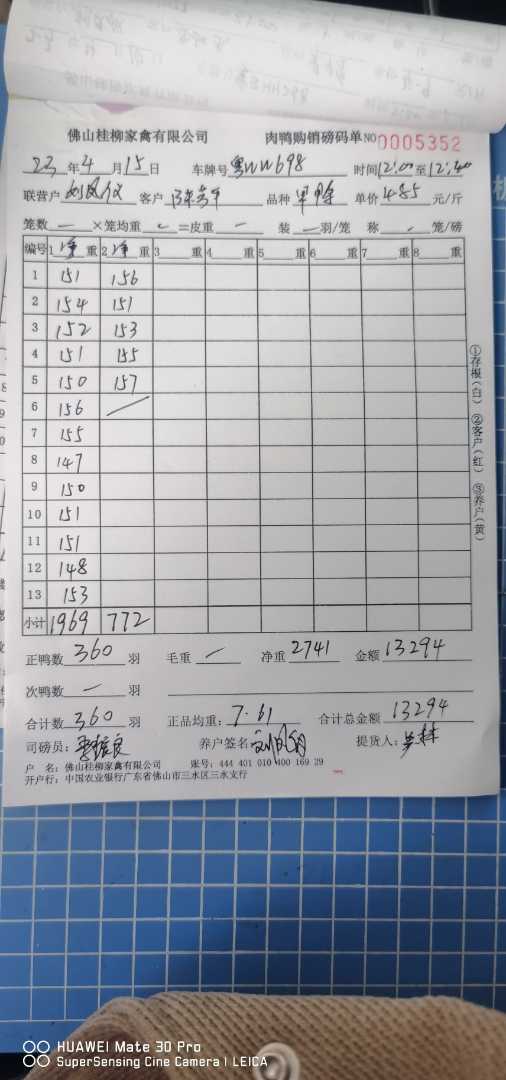 佛山桂柳家禽有限公司 肉鸭购销磅码单 NO 0005352
23 年 4 月 15 日 车牌号 粤WW698 时间 12:00 至 12:40
联营户 客户 品种 单价 4.85 元/斤
笼数 一 ×笼均重 =皮重 一 装 一 羽/笼 称 笼/磅
编号 1 净 重 2 净 重 3 重 4 重 5 重 6 重 7 重 8 重
1 151 156
2 154 151
3 152 153
4 151 155
5 150 157
6 156
7 155
8 147
9 150
10 151
11 151
12 148
13 153
小计 1969 772
正鸭数 360 羽 毛重 一 净重 2741 金额 13294
次鸭数 一 羽
合计数 360 羽 正品均重: 7.61 合计总金额 13294
司磅员: 养户签名: 提货人:
户 名: 佛山桂柳家禽有限公司 账号: 444 401 010 400 169 29
开户行: 中国农业银行广东省佛山市三水区三水支行
①存根(白) ②客户(红) ③养户(黄)
HUAWEI Mate 30 Pro
SuperSensing Cine Camera | LEICA